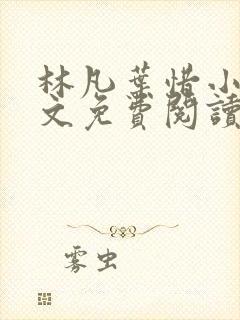 林凡葉惜小
文免費閱讀
雾虫